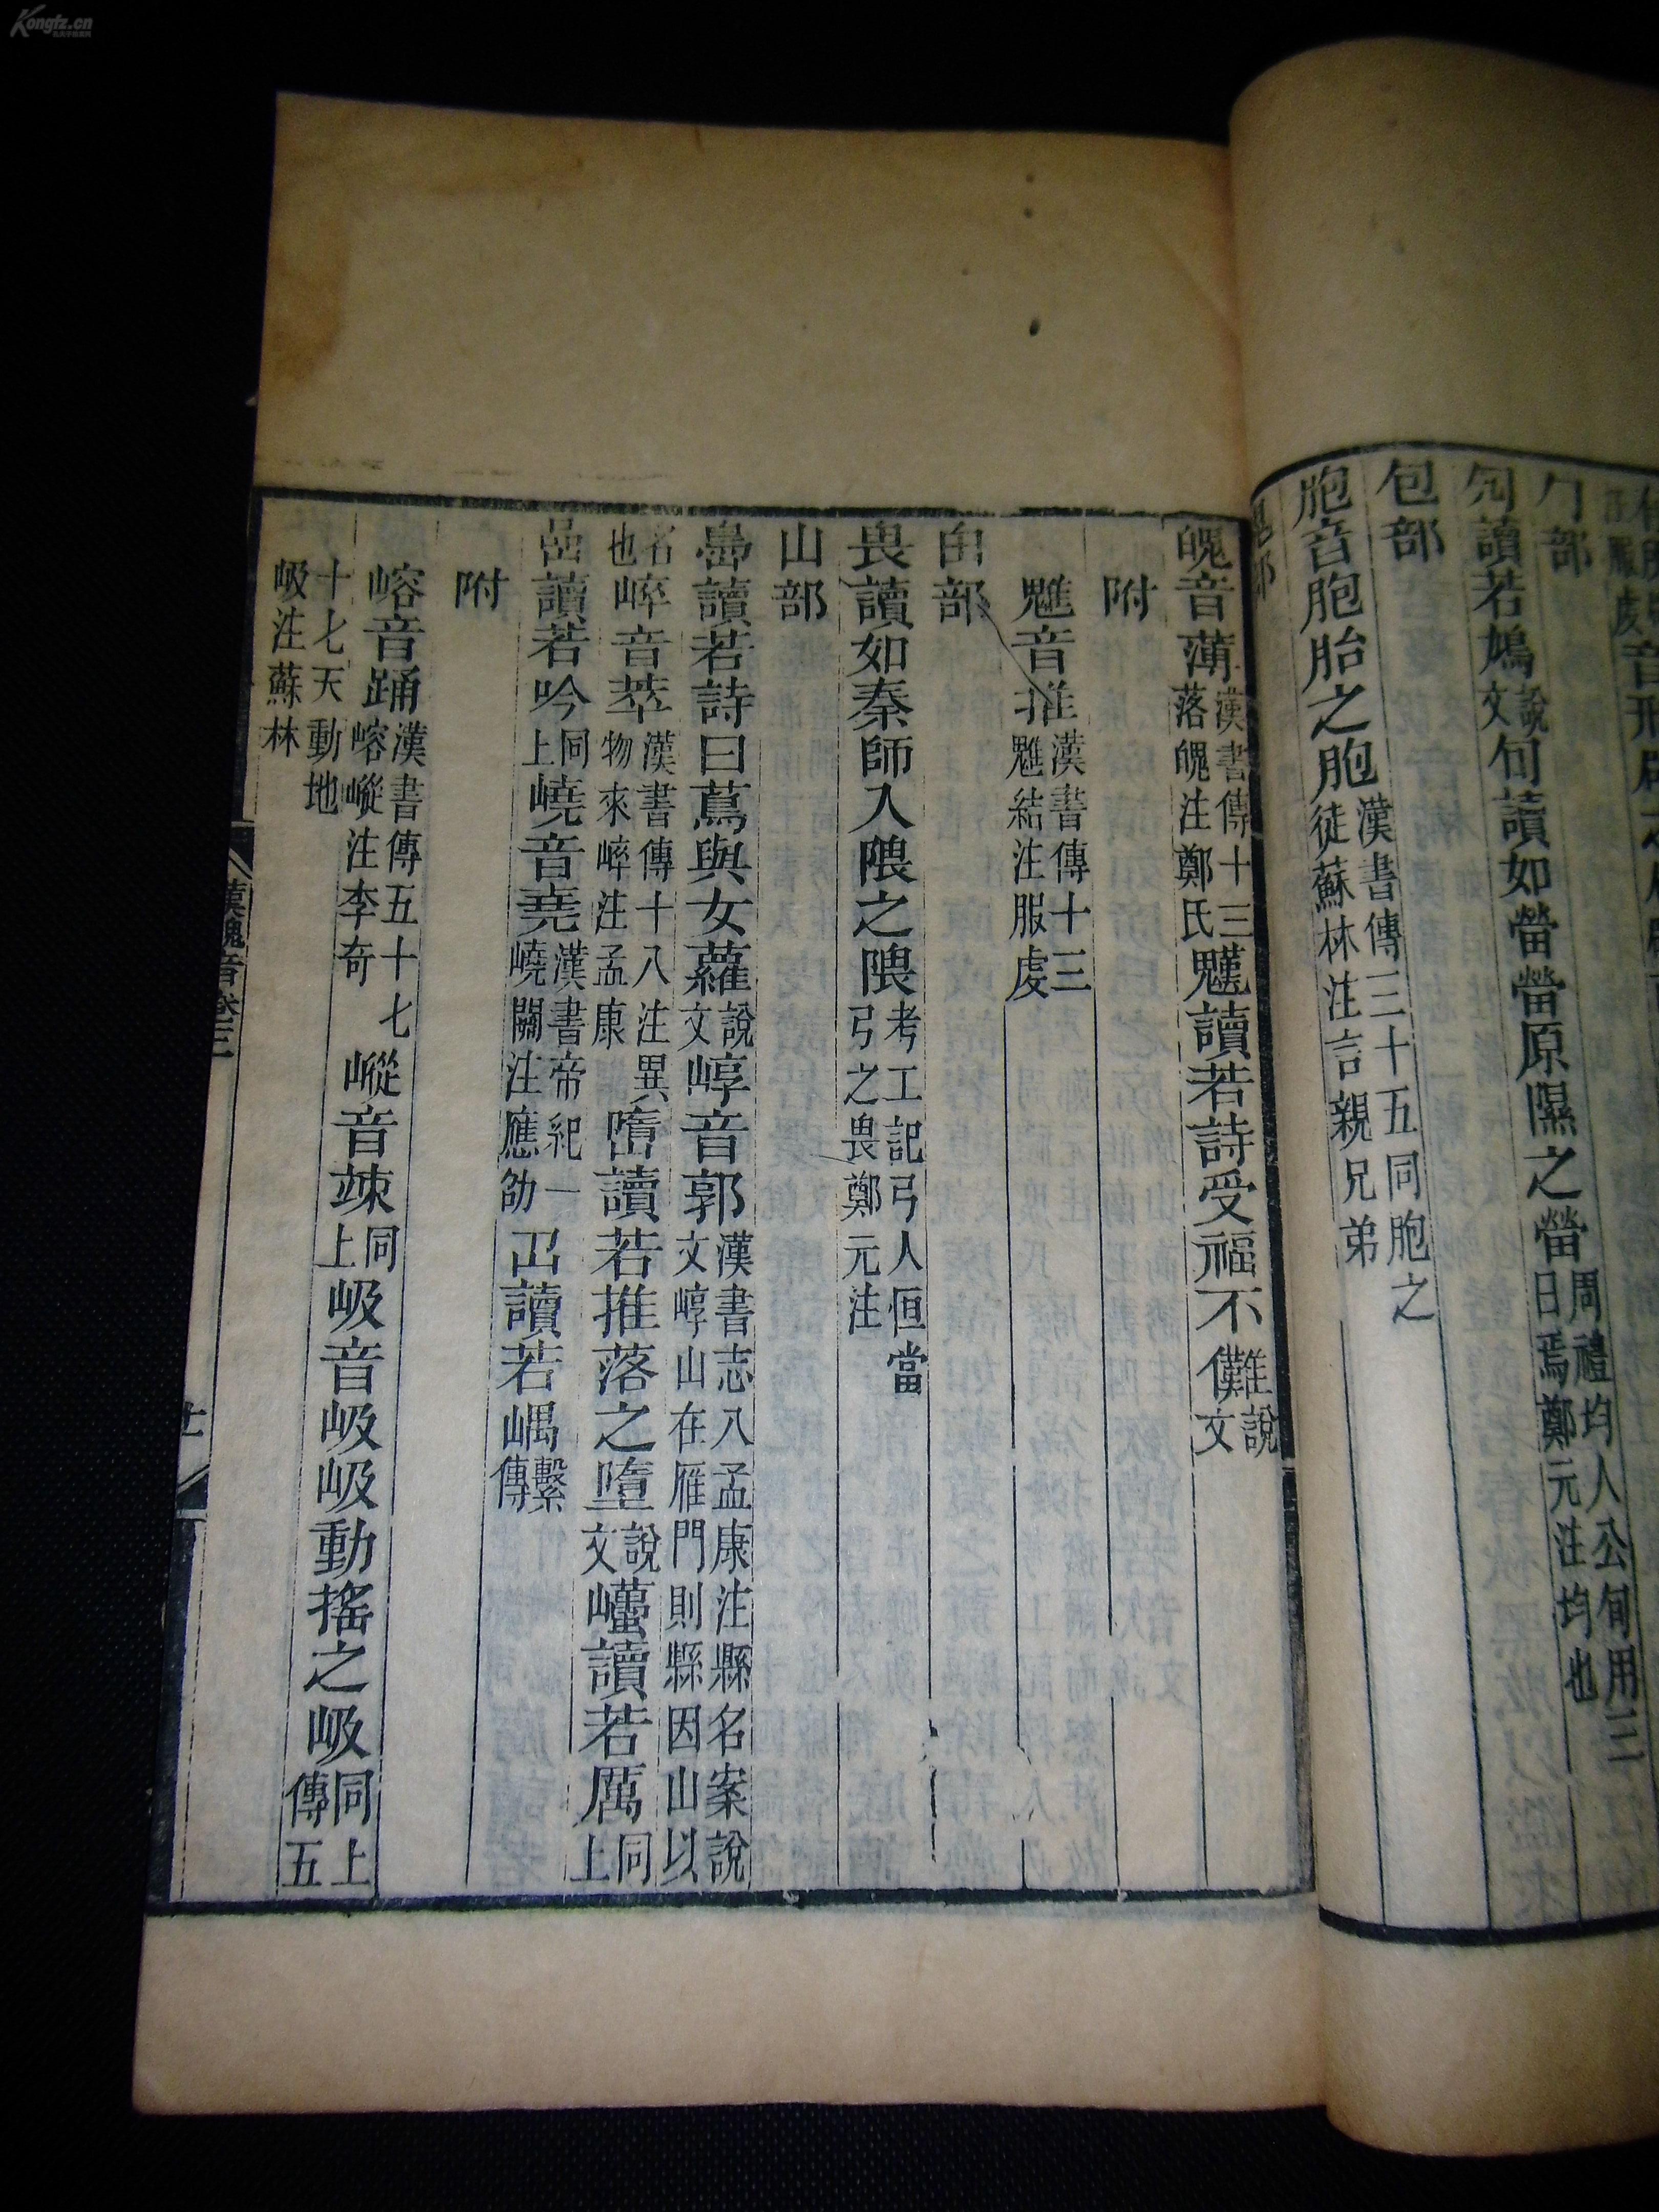 勹部
勼讀若鳩說文旬讀如營營原隰之營周禮均人公旬用三日焉鄭元注均也
包部
胞音胞胎之胞漢書傳三十五同胞之徒蘇林注言親兄弟
魄音薄漢書傳十三落魄注鄭氏魕讀若詩受福不儺說文
附
魋音推漢書傳十三魋結注服虔
甶部
畏讀如秦師入隈之隈考工記弓人但當弓之畏鄭元注
山部
讀若詩曰蔦與女蘿說文崞音郭漢書志八孟康注縣名案說文崞山在雁門則縣因山以
名也崪音萃漢書傳十八注異物來崪注孟康嶞讀若推落之墮說文巁讀若厲同上
嵒讀若吟同上嶢音堯漢書帝紀一嶢關注應劭讀若嵎繫傳
附
嵱音踊漢書傳五十七嵱嵷注李奇嵷音竦同上岋音岋岋動搖之岋同上傳五
十七天動地岋注蘇林
漢魏音卷三
Kongfz.cn